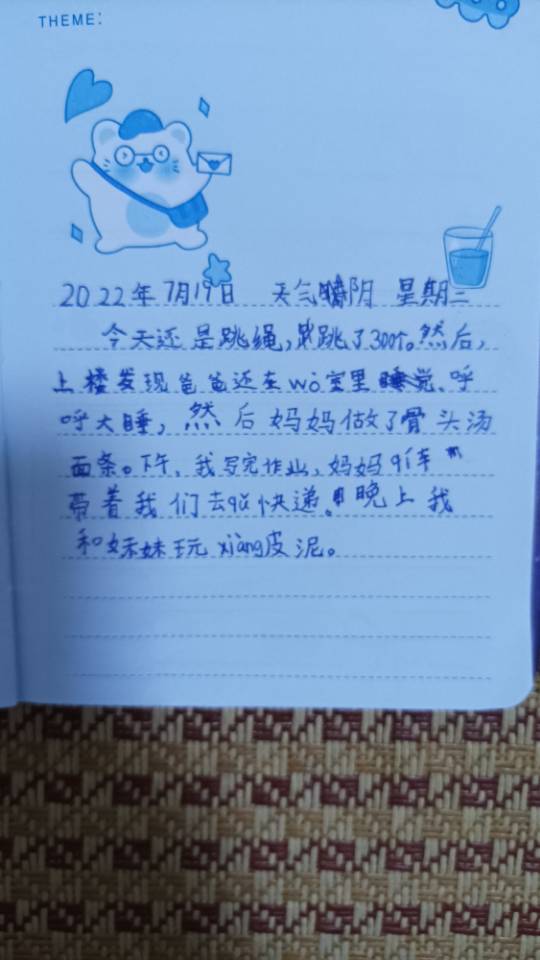 THEME:
2022年7月19日 天气阴 星期二
今天还是跳绳,跳了300个。然后,
上楼发现爸爸还在wò室里睡觉、呼
呼大睡,然后妈妈做了骨头汤
面条。下午,我写完作业,妈妈qí车
带着我们去qǔ快递。晚上我
和妹妹玩xiàng皮泥。